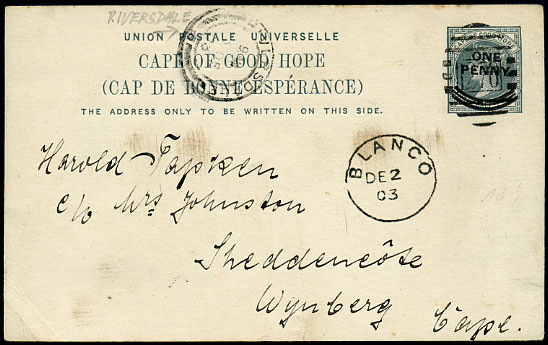 RIVERSDALE
UNION POSTALE UNIVERSELLE
CAPE OF GOOD HOPE
(CAP DE BONNE ESPÉRANCE)
THE ADDRESS ONLY TO BE WRITTEN ON THIS SIDE.
ONE
PENNY.
BLANCO
DE 2
03
Harold Tapken
c/o Mrs Johnston
Sheddencôte
Wynberg
Cape.